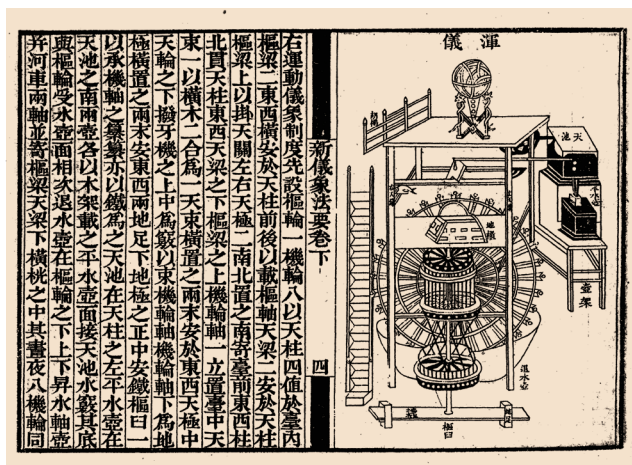 渾儀
天池
壺架
退水壺
樞臼
新儀象法要卷下
四
右運動儀象制度先設樞輪一機輪八以天柱四值於臺內
樞梁二東西橫安於天柱前後以載樞軸天梁二安於天柱
樞梁上以掛天關左右天極二南北置之南寄臺前東西柱
北貫天柱東西天梁之下樞梁之上機輪軸一立置臺中天
束一以橫木二合為一天束橫置之兩末安於東西天極中
天輪之下撥牙機之上中為竅以束機輪軸機輪軸下為地
極橫置之兩末安東西兩地足下地極之正中安鐵樞臼一
以承機軸之纂纂亦以鐵為之天池在天柱之左平水壺在
天池之南兩壺各以木架載之平水壺面接天池水竅其底
與樞輪受水壺面相次退水壺在樞輪之下上下昇水軸壺
并河車兩軸並寄樞梁天梁下橫桄之中其晝夜八機輪同